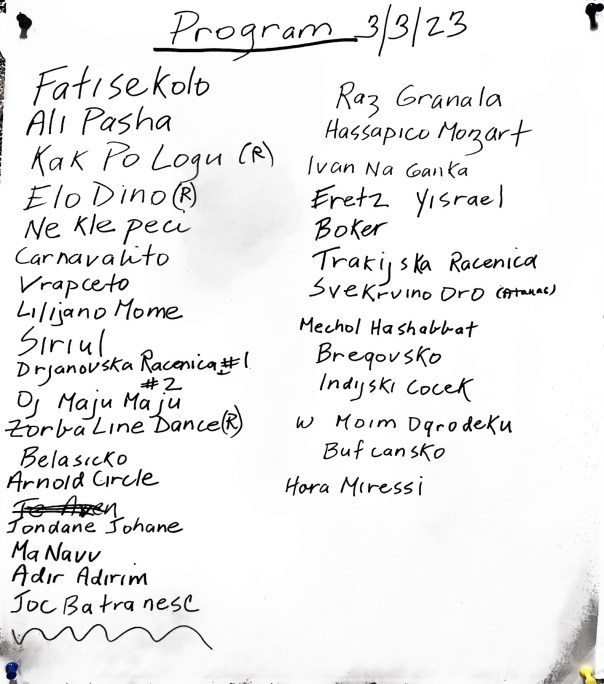 Program 3/3/23
Fatisekolo
Ali Pasha
Kak Po Logu (R)
Elo Dino (R)
Ne Kle peci
Carnavalito
Vrapceto
Lilijano Mome
Siriul
Drjanovska Racenica #1
#2
Oj Maju Maju
Zorba Line Dance (R)
Belasicko
Arnold Circle
Jondane Johane
Ma Navu
Adir Adirim
Joc Batranesc
Raz Granala
Hassapico Mozart
Ivan Na Ganka
Eretz Yisrael
Boker
Trakijska Racenica
Svekrvino Oro (Atanas)
Mechol Hashabbat
Bregovsko
Indijski Cocek
W Moim Ogrodeku
Bufcansko
Hora Miressi